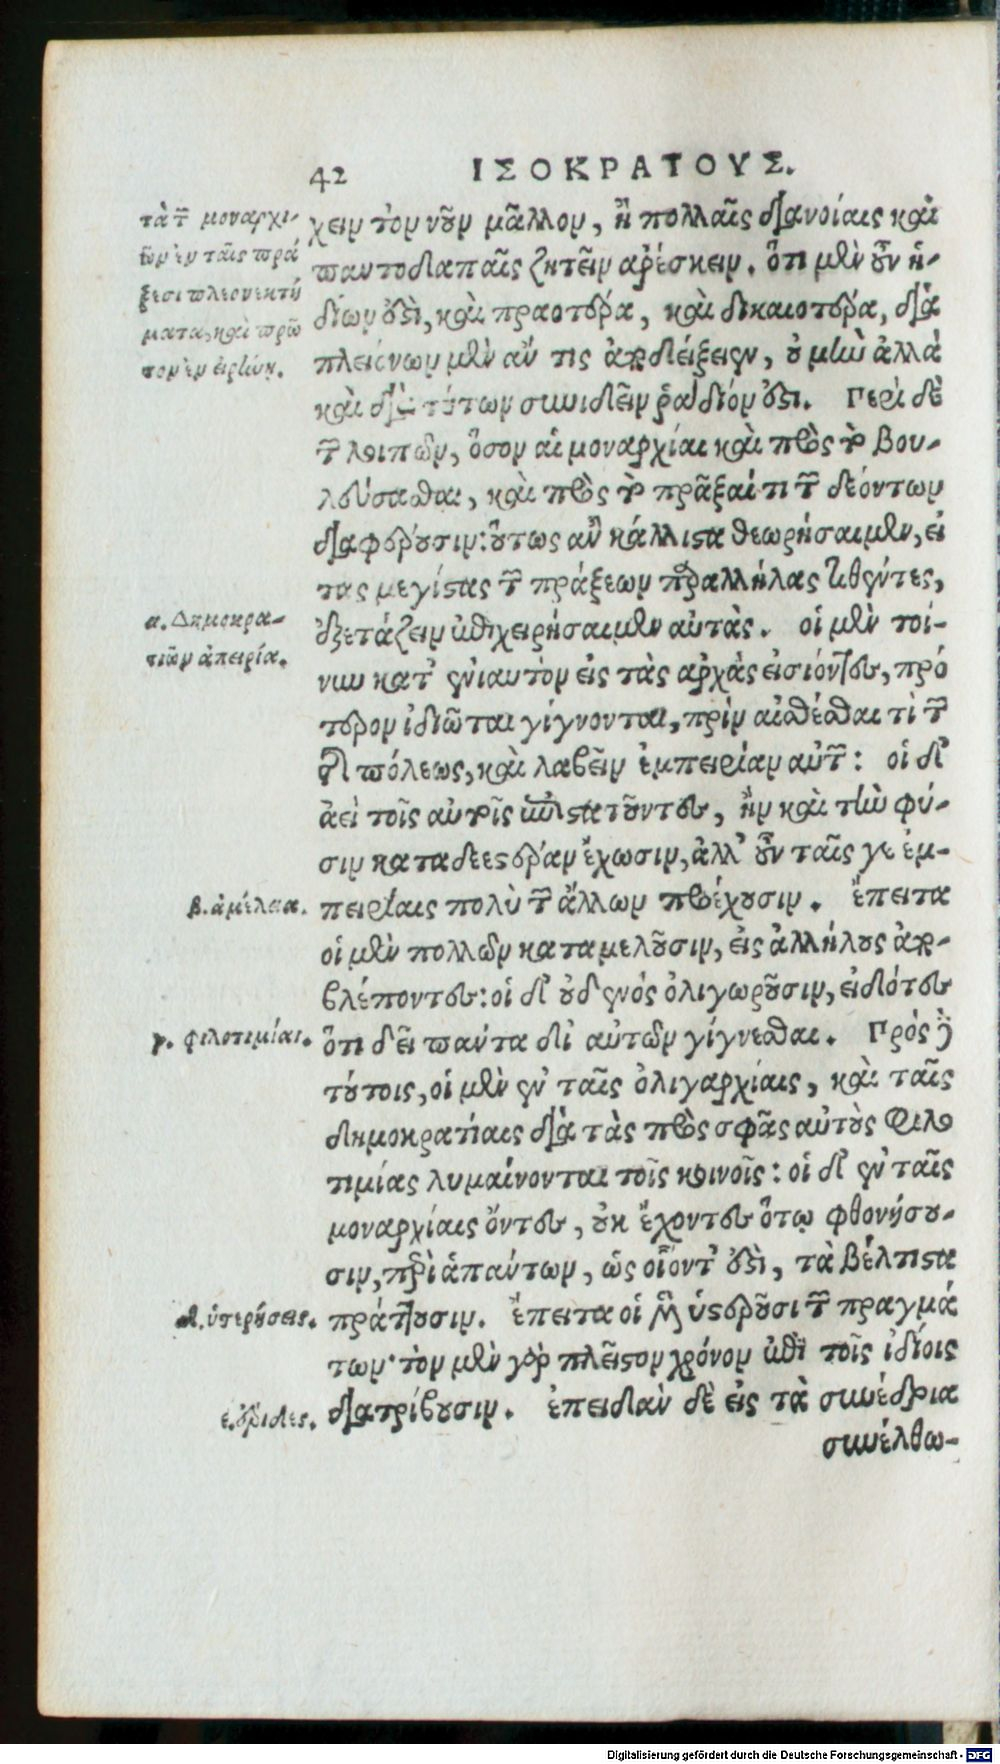 42 ΙΣΟΚΡΑΤΟΥΣ.
τὰ τῶν μοναρχι-
ῶν ἐν ταῖς πρά
ξεσι πλεονεκτή
ματα, καὶ πρῶ
τον ἐν εἰρήνῃ.
χειν τὸν νοῦν μᾶλλον, ἢ πολλαῖς διανοίαις καὶ
παντοδαπαῖς ζητεῖν ἀρέσκειν. ὅτι μὲν οὖν ἡ-
δίων ἐστὶ, καὶ πραοτέρα, καὶ δικαιοτέρα, διὰ
πλειόνων μὲν ἄν τις ἀποδείξειεν, οὐ μὴν ἀλλὰ
καὶ διὰ τούτων συνιδεῖν ῥᾴδιόν ἐστι. Περὶ δὲ
τῶν λοιπῶν, ὅσον αἱ μοναρχίαι καὶ πρὸς τὸ βου-
λεύσασθαι, καὶ πρὸς τὸ πρᾶξαί τι τῶν δεόντων
διαφέρουσιν: οὕτως ἂν κάλλιστα θεωρήσαιμεν, εἰ
τὰς μεγίστας τῶν πράξεων παραλλήλας τιθέντες,
ἐξετάζειν ἐπιχειρήσαιμεν αὐτάς. οἱ μὲν τοί-
α. Δημοκρα-
τιῶν ἀπειρία.
νυν κατ' ἐνιαυτὸν εἰς τὰς ἀρχὰς εἰσιόντες, πρό
τερον ἰδιῶται γίγνονται, πρὶν αἰσθέσθαι τὶ τῶν
τῆς πόλεως, καὶ λαβεῖν ἐμπειρίαν αὐτῶν: οἱ δ'
ἀεὶ τοῖς αὐτοῖς ἐπιστατοῦντες, ἢν καὶ τὴν φύ-
σιν καταδεεστέραν ἔχωσιν, ἀλλ' οὖν ταῖς γε ἐμ-
β. ἀμέλεια.
πειρίαις πολὺ τῶν ἄλλων προέχουσιν. ἔπειτα
οἱ μὲν πολλῶν καταμελοῦσιν, εἰς ἀλλήλους ἀπο-
βλέποντες: οἱ δ' οὐδενὸς ὀλιγωροῦσιν, εἰδότες
γ. φιλοτιμίαι.
ὅτι δεῖ πάντα δι' αὑτῶν γίγνεσθαι. Πρὸς δὲ
τούτοις, οἱ μὲν ἐν ταῖς ὀλιγαρχίαις, καὶ ταῖς
δημοκρατίαις διὰ τὰς πρὸς σφᾶς αὐτοὺς φιλο
τιμίας λυμαίνονται τοῖς κοινοῖς: οἱ δ' ἐν ταῖς
μοναρχίαις ὄντες, οὐκ ἔχοντες ὅτῳ φθονήσου-
σιν, περὶ ἁπάντων, ὡς οἷόντ' ἐστὶ, τὰ βέλτιστα
δ. ὑστερήσεις.
πράττουσιν. ἔπειτα οἱ μὲν ὑστεροῦσι τῶν πραγμά
των· τὸν μὲν γὰρ πλεῖστον χρόνον ἐπὶ τοῖς ἰδίοις
ε. ἔριδες.
διατρίβουσιν. ἐπειδὰν δὲ εἰς τὰ συνέδρια
συνέλθω-
Digitalisierung gefördert durch die Deutsche Forschungsgemeinschaft - DFG